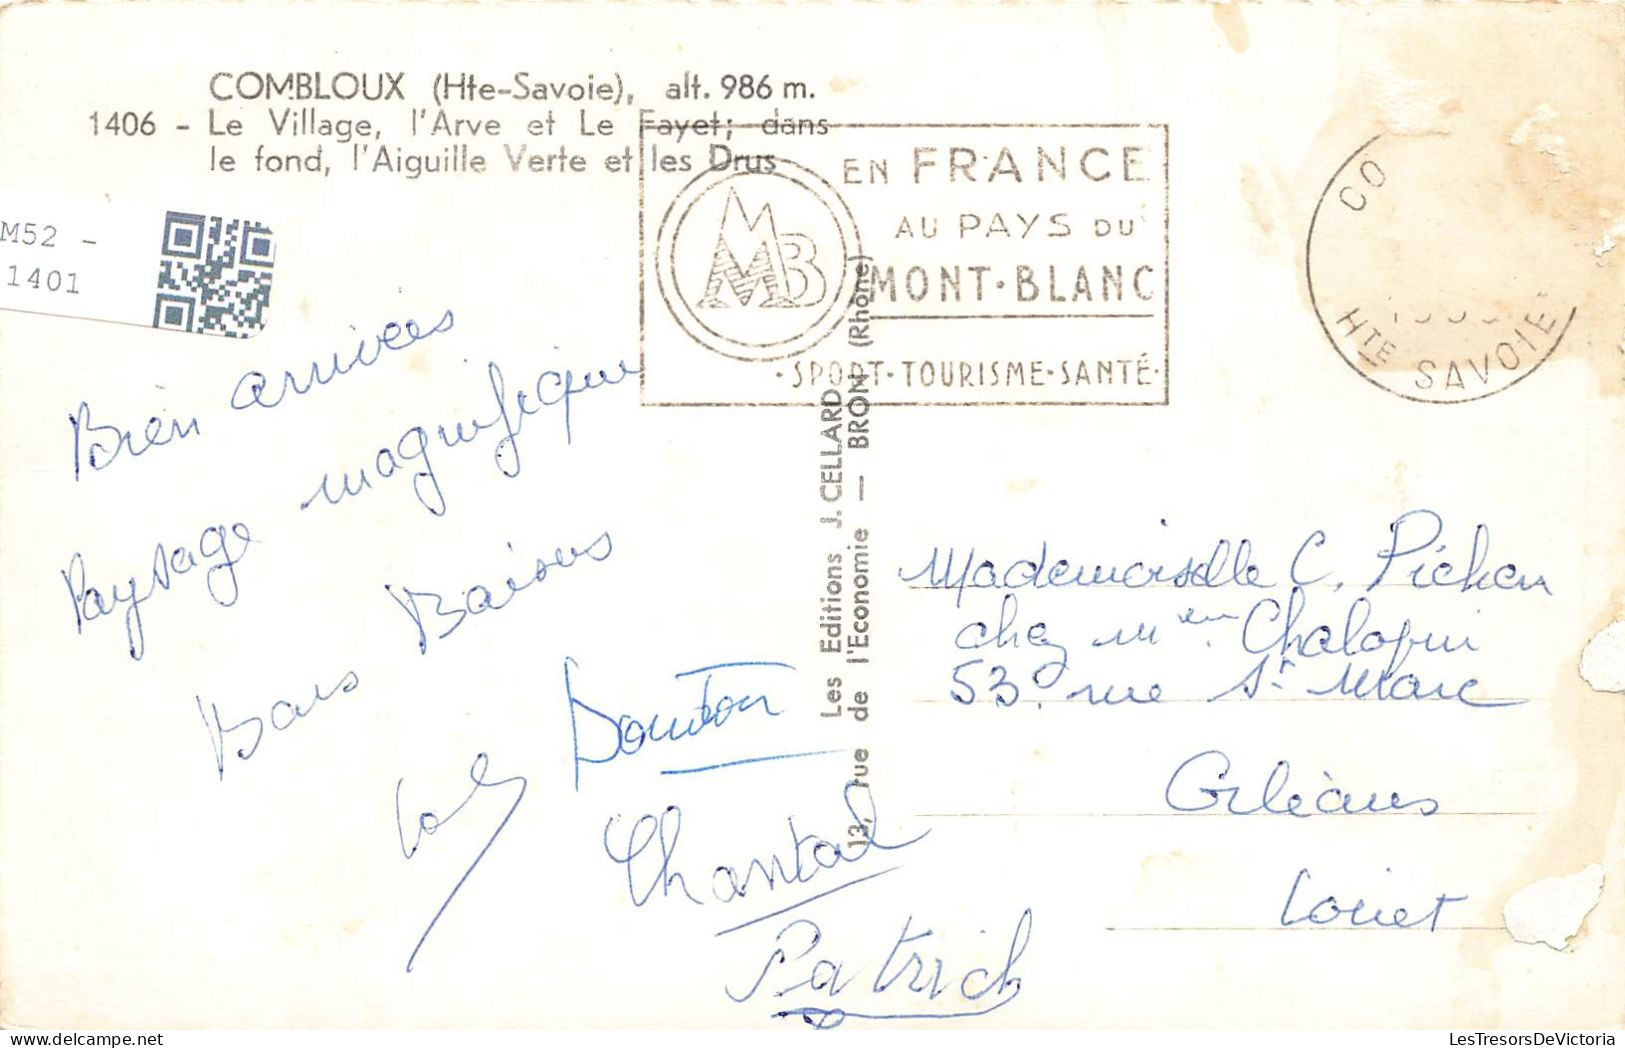 COMBLOUX (Hte-Savoie), alt. 986 m.
1406 - Le Village, l'Arve et Le Fayet; dans
le fond, l'Aiguille Verte et les Drus
M52 -
1401
MB
EN FRANCE
AU PAYS DU
MONT-BLANC
·SPORT·TOURISME·SANTÉ·
CO
HTE SAVOIE
Bien arrivées
Paysage magnifique
Bons Baisers
Chantal
Patrick
Les Editions J. CELLARD
13, rue de l'Economie — BRON (Rhône)
Mademoiselle C. Pichon
chez Mr en Chalopin
53, rue St Marc
Orléans
Loiret
LesTresorsDeVictoria